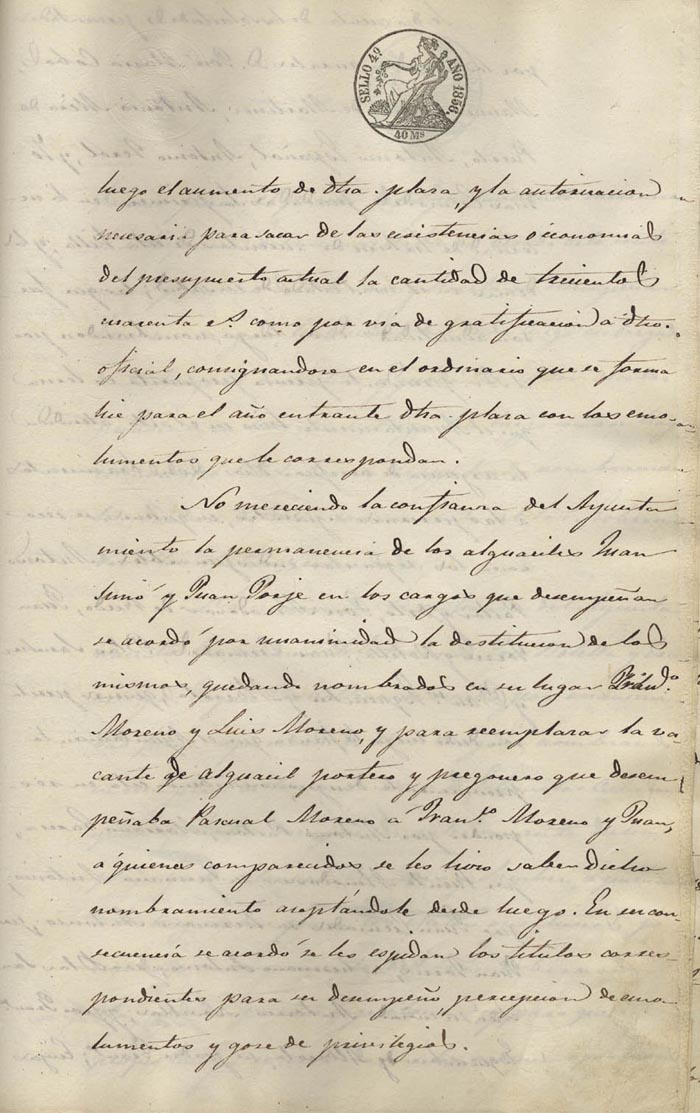 SELLO 4º AÑO 1856.
40 Ms
luego el aumento de dha. plaza, y la autorizacion
necesaria para sacar de las ecsistencias o economias
del presupuesto actual la cantidad de trecientos
cuarenta rs. como por via de gratificacion a dho.
oficial, consignandose en el ordinario que se forma
lice para el año entrante dha. plaza con los emo-
lumentos que le correspondan.
No mereciendo la confianza del Ayunta
miento la permanencia de los alguaciles Juan
Simó y Juan en los cargos que desempeñan
se acordó por unanimidad la destitucion de los
mismos, quedando nombrados en su lugar
Moreno y Luis Moreno, y para reemplazar la va-
cante de alguacil portero y pregonero que desem
peñaba Pascual Moreno a Fran.co Moreno y Juan,
a quienes comparecidos se les hizo saber dicho
nombramiento aceptándole desde luego. En su con
secuencia se acordó se les espidan los titulos corres-
pondientes para su desempeño, percepcion de emo
lumentos y gose de privilegios.